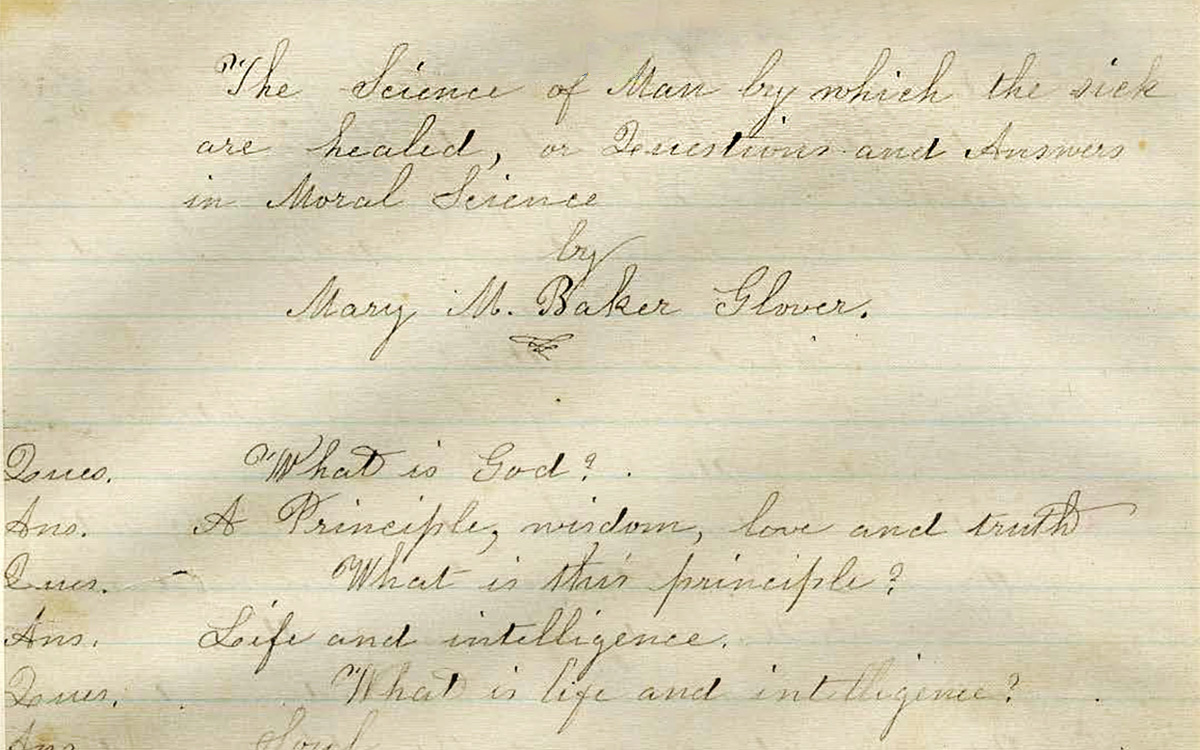 The Science of Man by which the sick
are healed, or Questions and Answers
in Moral Science
by
Mary M. Baker Glover.
Ques. What is God?
Ans. A Principle, wisdom, love and truth
Ques. What is this principle?
Ans. Life and intelligence.
Ques. What is life and intelligence?
Ans. Soul